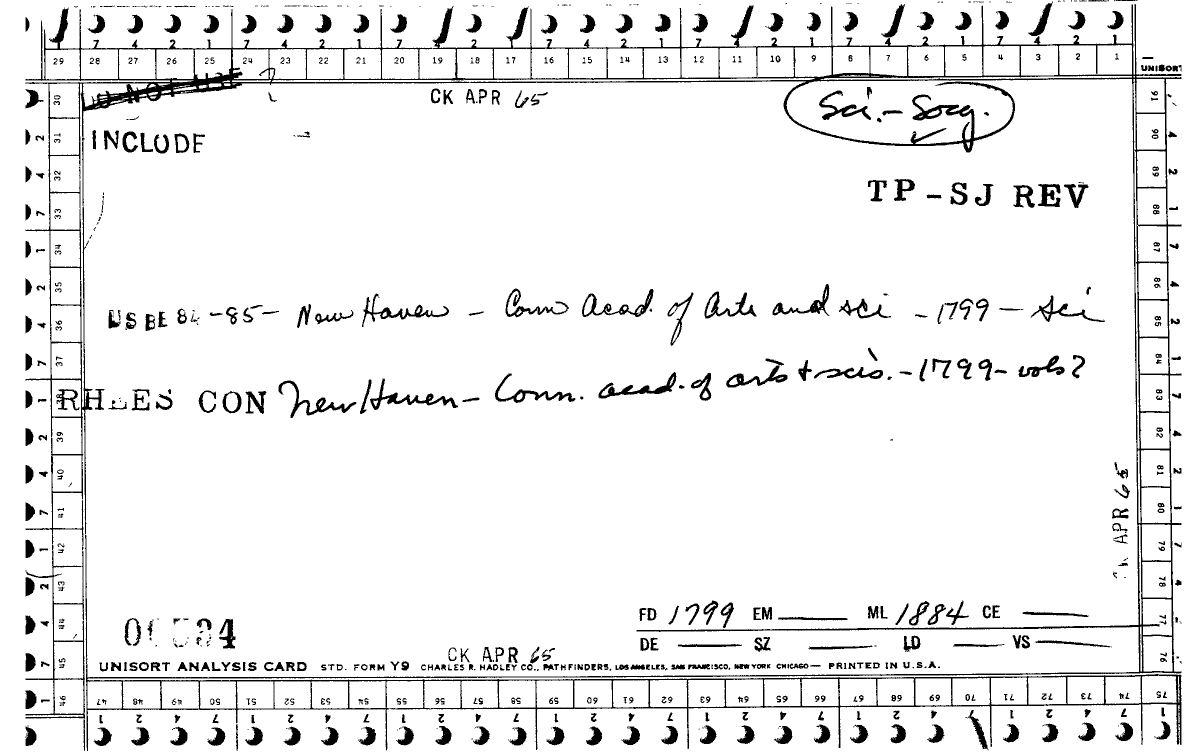 7 4 2 1 7 4 2 1 7 4 2 1 7 4 2 1 7 4 2 1 7 4 2 1 7 4 2 1
29 28 27 26 25 24 23 22 21 20 19 18 17 16 15 14 13 12 11 10 9 8 7 6 5 4 3 2 1
UNISORT
DO NOT USE ?
CK APR 65
Sci.-Socy.
INCLUDE
TP-SJ REV
US BE 84-85- New Haven - Conn Acad. of Arts and sci - 1799 - sci
RHEES CON New Haven- Conn. acad. of arts + scis. - 1799- vols?
CK APR 65
FD 1799 EM ML 1884 CE
DE SZ LD VS
CK APR 65
UNISORT ANALYSIS CARD STD. FORM Y9 CHARLES R. HADLEY CO., PATHFINDERS, LOS ANGELES, SAN FRANCISCO, NEW YORK CHICAGO— PRINTED IN U.S.A.
30 31 32 33 34 35 36 37 38 39 40 41 42 43 44 45 46
91 90 89 88 87 86 85 84 83 82 81 80 79 78 77 76
47 48 49 50 51 52 53 54 55 56 57 58 59 60 61 62 63 64 65 66 67 68 69 70 71 72 73 74 75